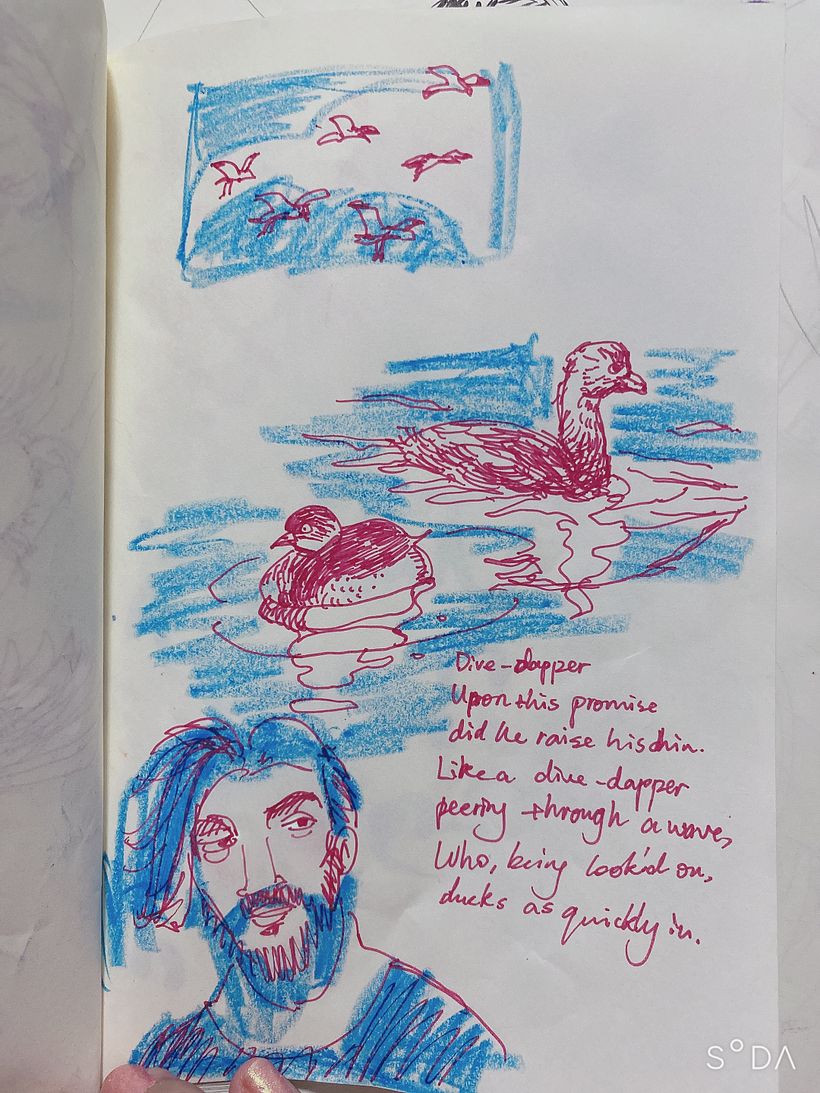 Dive-dapper
Upon this promise
did he raise his chin.
Like a dive-dapper
peering through a wave,
Who, being look'd on,
ducks as quickly in.
SODA